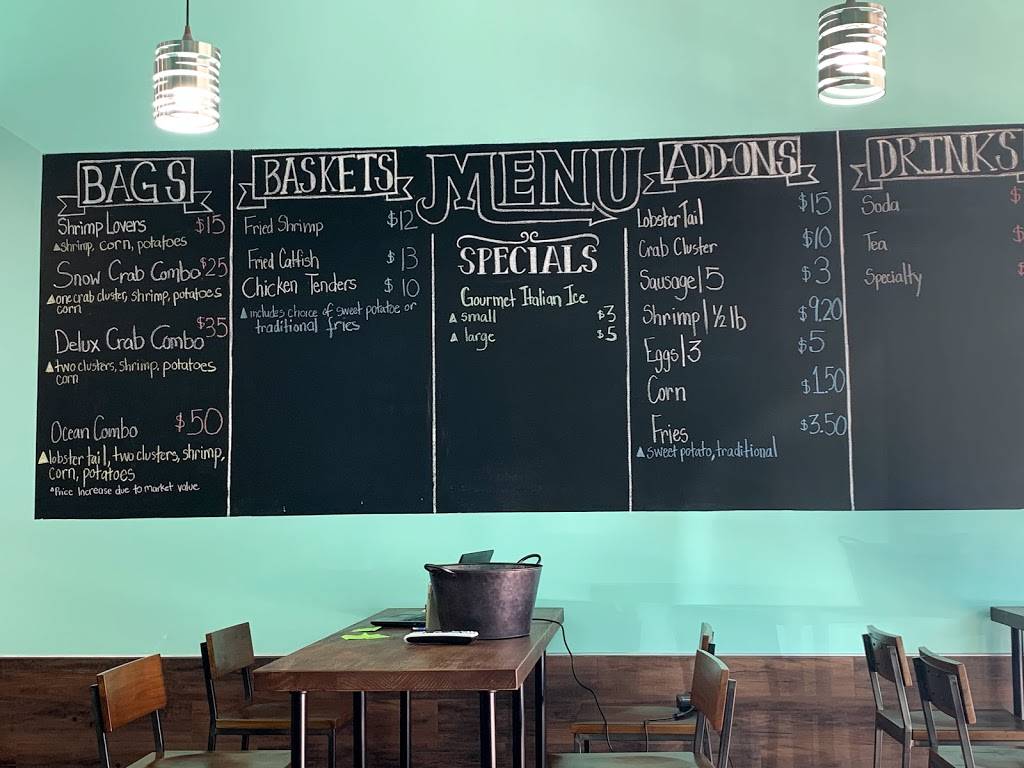 BAGS
Shrimp Lovers $15
shrimp, corn, potatoes
Snow Crab Combo $25
one crab cluster, shrimp, potatoes
corn
Delux Crab Combo $35
two clusters, shrimp, potatoes
corn
Ocean Combo $50
lobster tail, two clusters, shrimp,
corn, potatoes
*Price Increase due to market value
BASKETS
Fried Shrimp $12
Fried Catfish $13
Chicken Tenders $10
includes choice of sweet potatoe or
traditional fries
MENU
SPECIALS
Gourmet Italian Ice
small $3
large $5
ADD-ONS
Lobster Tail $15
Crab Cluster $10
Sausage|5 $3
Shrimp|½ lb $9.20
Eggs|3 $5
Corn $1.50
Fries $3.50
sweet potato, traditional
DRINKS
Soda $
Tea $
Specialty $